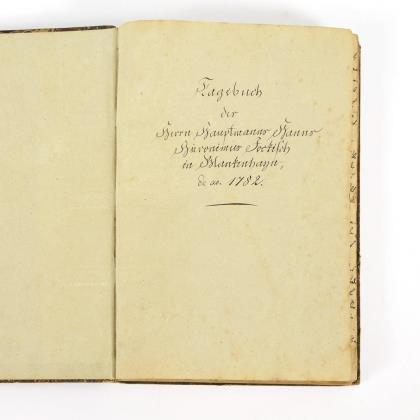 Tagebuch
der
Herrn Hauptmanns Hanns
Hieronimus
in Blankenhayn,
de ao. 1782.